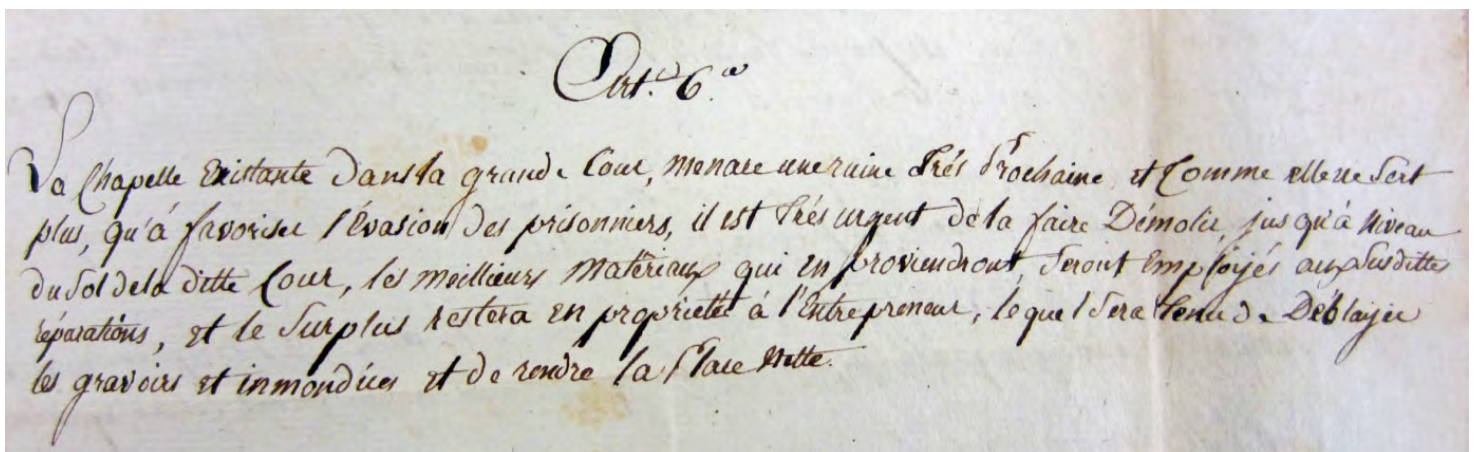 Art. 6.e
La Chapelle Existante Dans la grande Cour, menace une ruine Trés Prochaine, et Comme elle ne Sert
plus, qu'à favoriser l'évasion des prisonniers, il est trés urgent de la faire Démolir, jusqu'à Niveau
du Sol de la ditte Cour, les meillieurs matériaux qui en proviendront, Seront Employés aux Susdittes
réparations, et le Surplus restera en proprietté à l'Entrepreneur, lequel Sera tenu de Déblayer
les gravoirs et inmondices et de rendre la Place Nette.